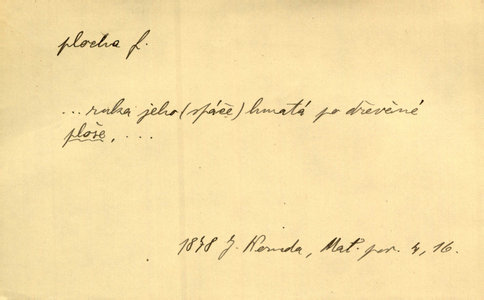 plocha f.
... ruka jeho (spáče) hmatá po dřevěné
ploše, ...
1878 J. Neruda, Mal. pov. 4, 16.